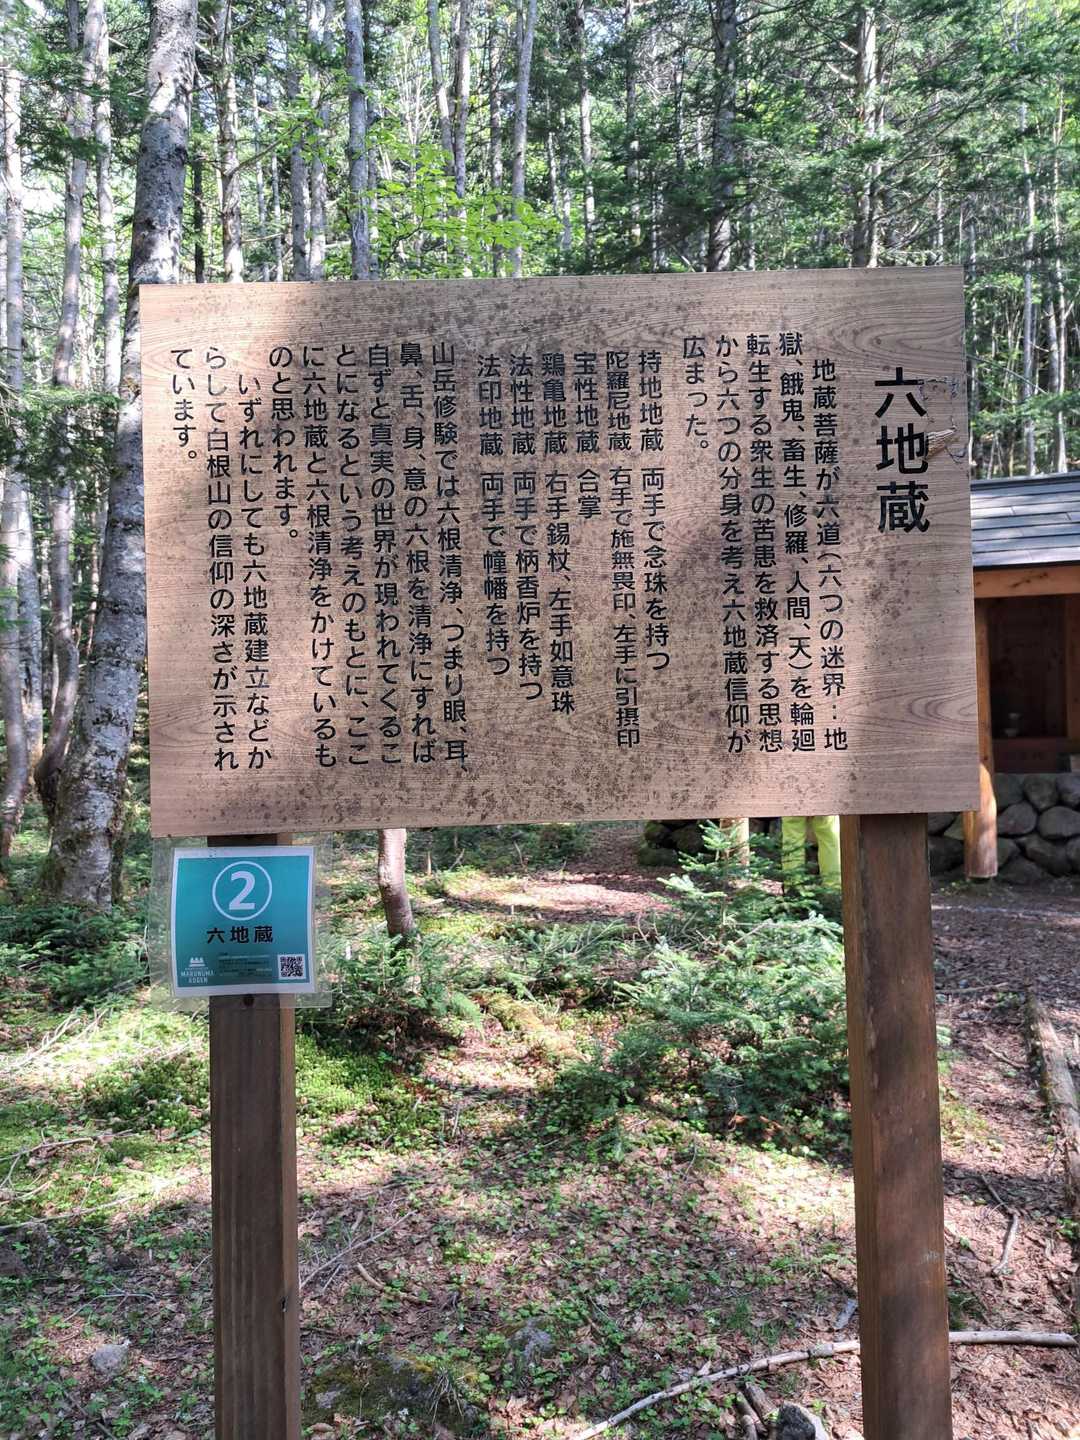 六地蔵
地蔵菩薩が六道(六つの迷界:地
獄、餓鬼、畜生、修羅、人間、天)を輪廻
転生する衆生の苦患を救済する思想
から六つの分身を考え六地蔵信仰が
広まった。
持地地蔵 両手で念珠を持つ
陀羅尼地蔵 右手で施無畏印、左手に引摂印
宝性地蔵 合掌
鶏亀地蔵 右手錫杖、左手如意珠
法性地蔵 両手で柄香炉を持つ
法印地蔵 両手で幢幡を持つ
山岳修験では六根清浄、つまり眼、耳、
鼻、舌、身、意の六根を清浄にすれば
自ずと真実の世界が現われてくるこ
とになるという考えのもとに、ここ
に六地蔵と六根清浄をかけているも
のと思われます。
いずれにしても六地蔵建立などか
らして白根山の信仰の深さが示され
ています。
2
六地蔵
MARUNUMA
KOGEN